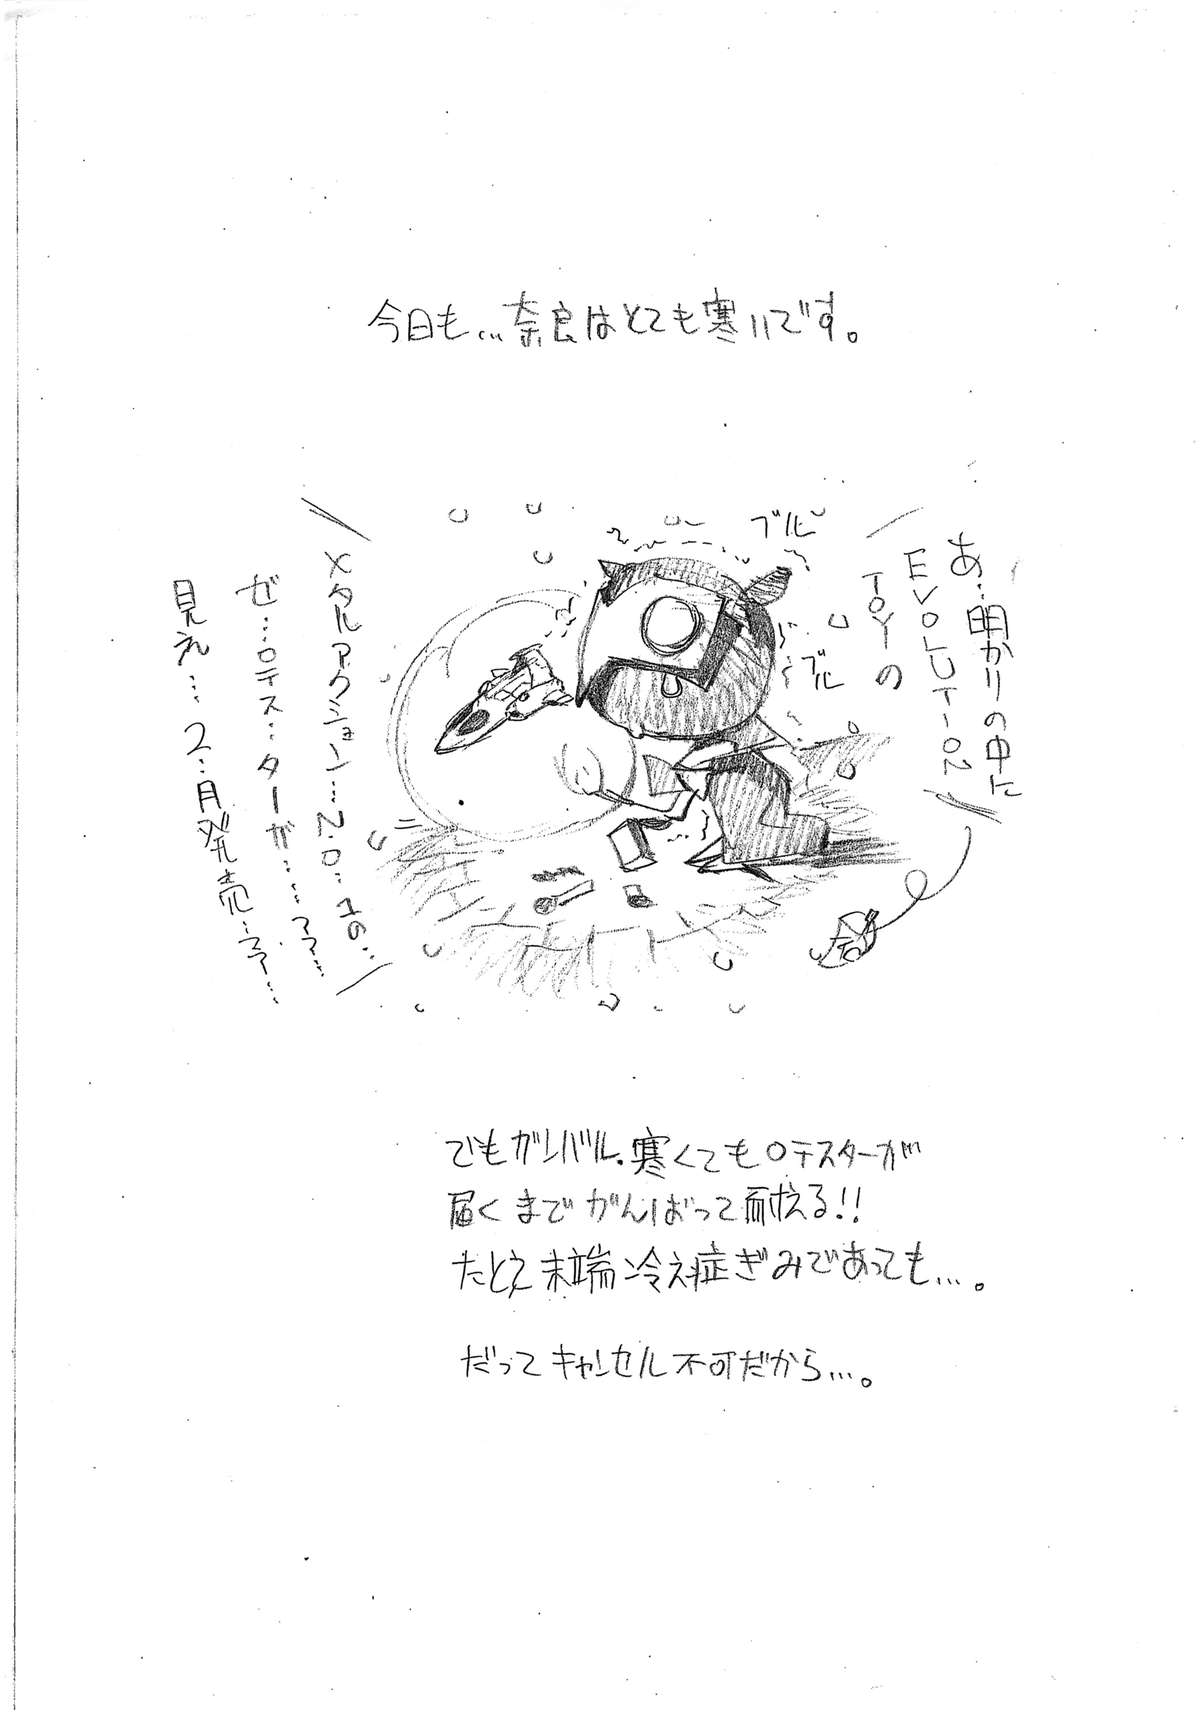 今日も...奈良はとても寒いです。
ブルブル
あ...明かりの中に
EVOLUTION
TOYの
メタルアクション...2.0...
ゼ...ロテス...ターが......
見え...2...月発売...
ブル
でもガンバル.寒くてもロテスターが
届くまでがんばって耐える!!
たとえ末端冷え症ぎみであっても...。
だってキャンセル不可だから...。